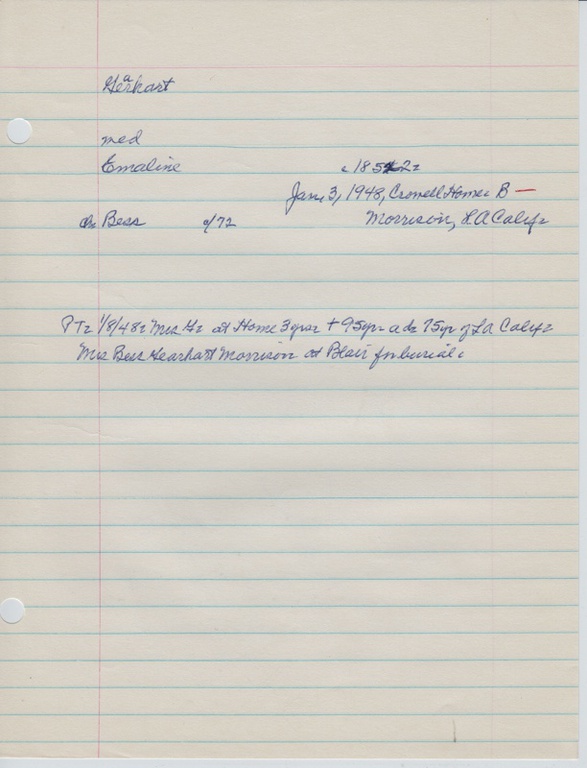 Gearhart
med
Emaline c 1852
Jan 3, 1948, Crowell Home B —
ch Bess 0/72 Morrison, LA Calif
PT 1/8/48 Mrs G at Home 3 yrs + 95 yr a d 75 yr of LA Calif
Mrs Bess Gearhart Morrison at Blair for burial